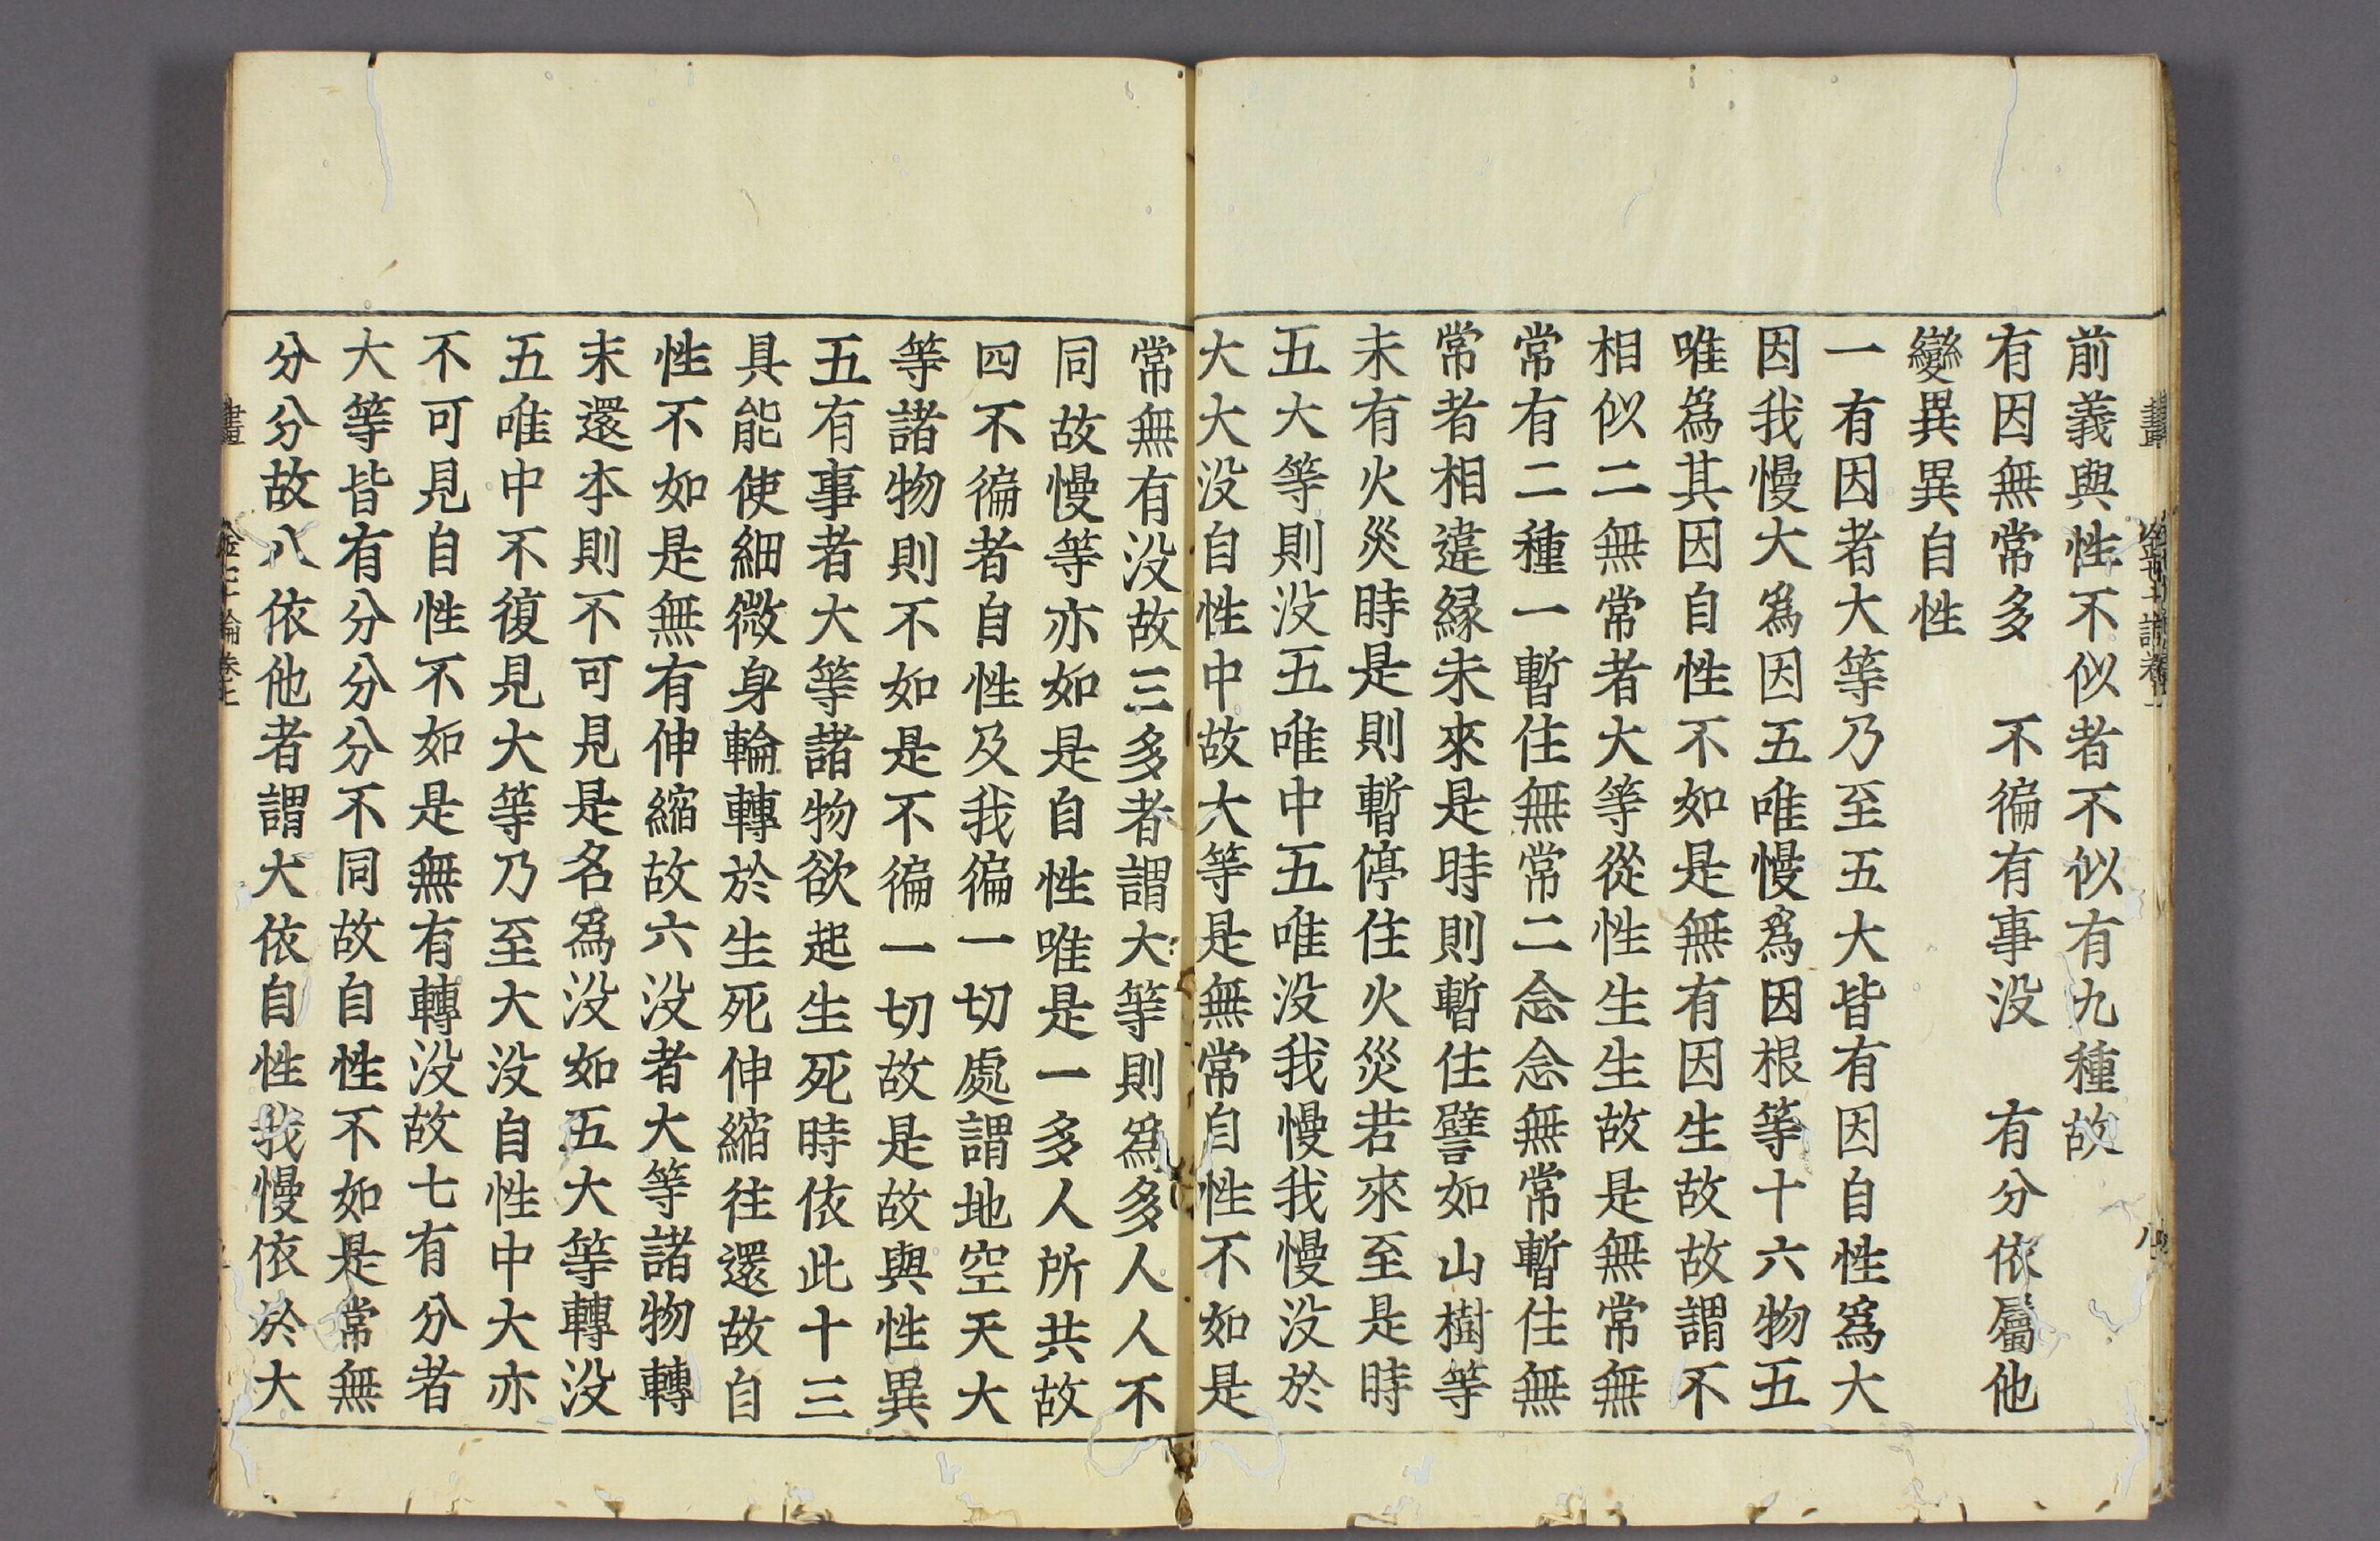 前義與性不似者不似有九種故
有因無常多　不徧有事没　有分依屬他
變異異自性
一有因者大等乃至五大皆有因自性爲大
因我慢大爲因五唯慢爲因根等十六物五
唯爲其因自性不如是無有因生故故謂不
相似二無常者大等從性生生故是無常無
常有二種一暫住無常二念念無常暫住無
常者相違縁未來是時則暫住譬如山樹等
未有火災時是則暫停住火災若來至是時
五大等則没五唯中五唯没我慢我慢没於
大大没自性中故大等是無常自性不如是
常無有没故三多者謂大等則爲多人人不
同故慢等亦如是自性唯是一多人所共故
四不徧者自性及我徧一切處謂地空天大
等諸物則不如是不徧一切故是故與性異
五有事者大等諸物欲起生死時依此十三
具能使細微身輪轉於生死伸縮往還故自
性不如是無有伸縮故六没者大等諸物轉
末還本則不可見是名爲没如五大等轉没
五唯中不復見大等乃至大没自性中大亦
不可見自性不如是無有轉没故七有分者
大等皆有分分分不同故自性不如是常無
分分故八依他者謂大依自性我慢依於大